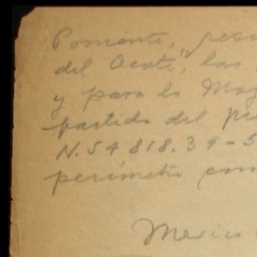 Poniente, resu
del Oeste, las
y para la Mag
partida del pu
N.54 818.39-5
perímetro com
Mexico